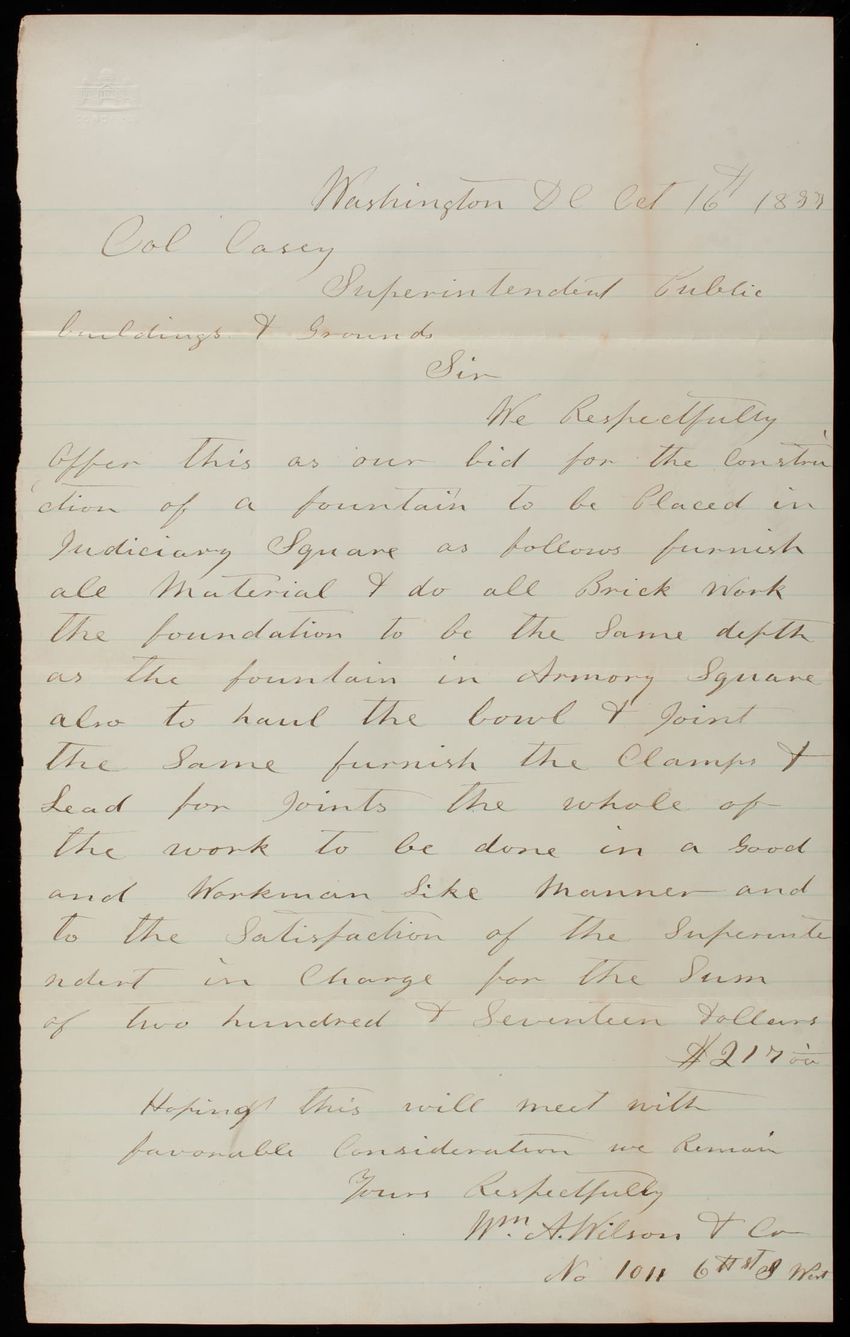 CONGRESS
Washington DC Oct 16th 1877
Col Casey
Superintendent Public
buildings & Grounds
Sir
We Respectfully
Offer this as our bid for the Constru
ction of a fountain to be Placed in
Judiciary Square as follows furnish
all Material & do all Brick Work
the foundation to be the Same depth
as the fountain in Armory Square
also to haul the bowl & Joint
the Same furnish the Clamps &
Lead for Joints the whole of
the work to be done in a Good
and Workman Like Manner and
to the Satisfaction of the Superinte
ndent in Charge for the Sum
of two hundred & Seventeen Dollars
$217 00
Hoping this will meet with
favorable Consideration we Remain
Yours Respectfully
Wm. A. Wilson & Co
No 1011 6th st S West